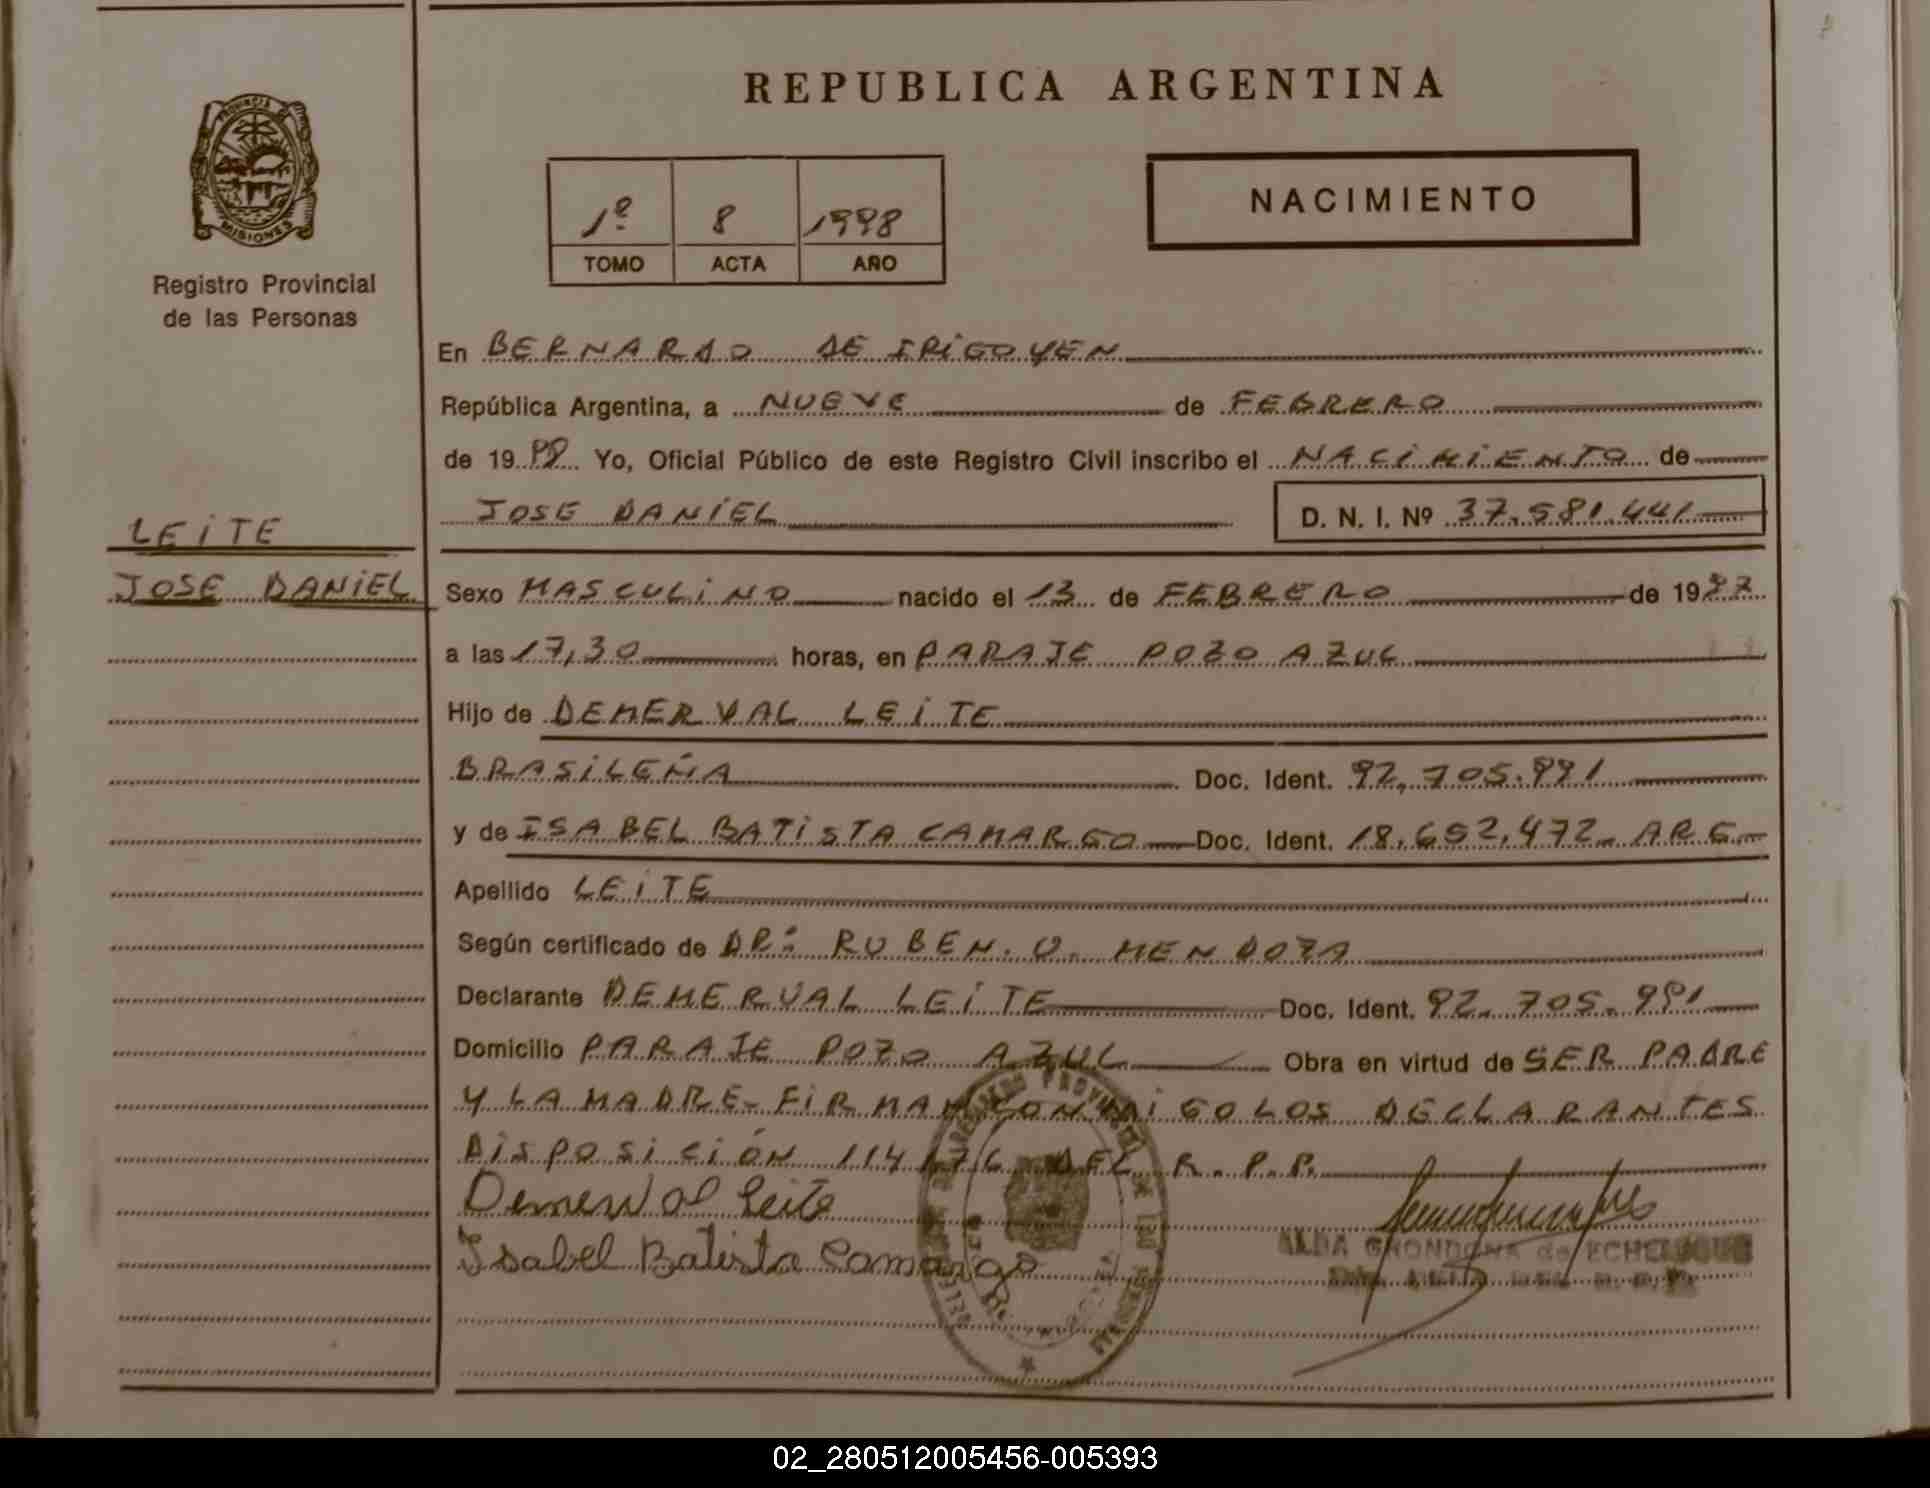 REPUBLICA ARGENTINA
PROVINCIA DE
MISIONES
Registro Provincial
de las Personas
1º 8 1998
TOMO ACTA AÑO
NACIMIENTO
En BERNARDO DE IRIGOYEN
República Argentina, a NUEVE de FEBRERO
de 1998 Yo, Oficial Público de este Registro Civil inscribo el NACIMIENTO de
JOSE DANIEL D. N. I. Nº 37.581.441
LEITE
JOSE DANIEL
Sexo MASCULINO nacido el 13 de FEBRERO de 1997
a las 17,30 horas, en PARAJE POZO AZUL
Hijo de DEMERVAL LEITE
BRASILEÑA Doc. Ident. 92.705.991
y de ISABEL BATISTA CAMARGO Doc. Ident. 18.652.472 - ARG.
Apellido LEITE
Según certificado de DR: RUBEN. O. MENDOZA
Declarante DEMERVAL LEITE Doc. Ident. 92.705.991
Domicilio PARAJE POZO AZUL Obra en virtud de SER PADRE
Y LA MADRE - FIRMAN CONMIGO LOS DECLARANTES
DISPOSICIÓN 114/76 DEL R.P.P.
Demerval Leite
Isabel Batista Camargo
ALBA GHONDONA de ECHELUQUE
02_280512005456-005393